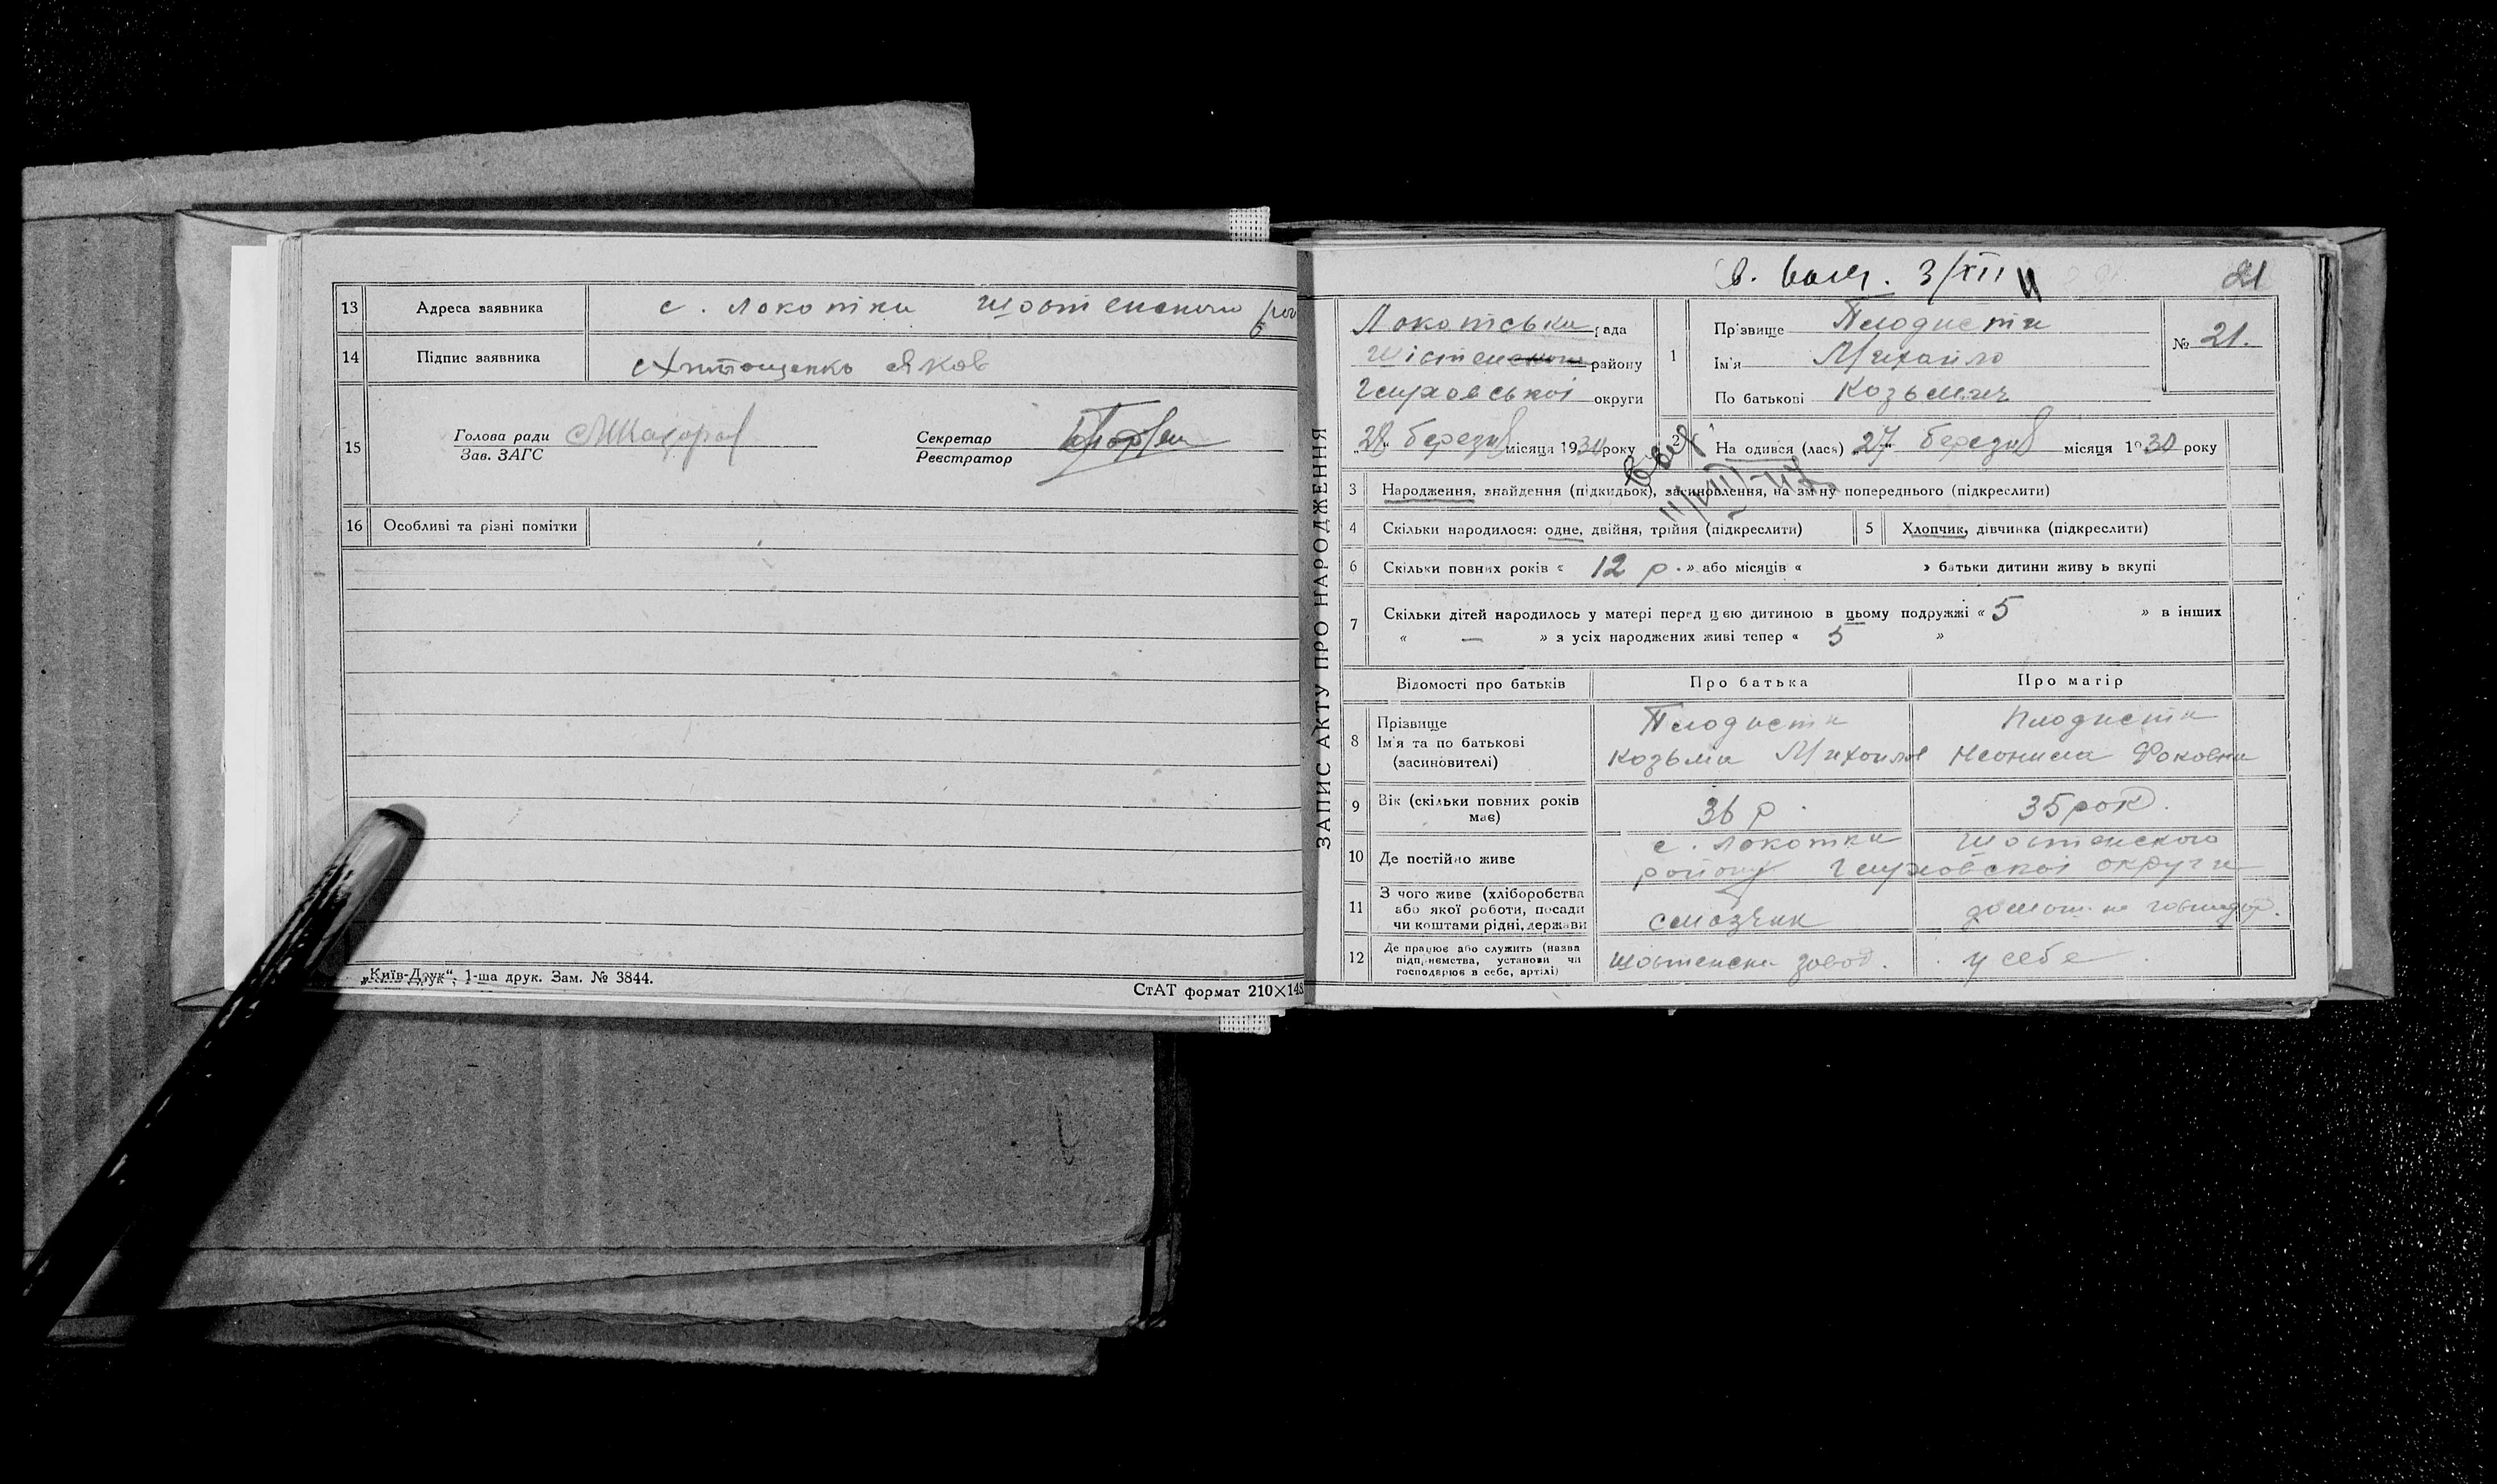 13 Адреса заявника с. Локотки Шостенского
14 Підпис заявника Яков
15 Голова ради
Зав. ЗАГС
Секретар
Реєстратор
16 Особливі та різні помітки
„Київ-Друк“, 1-ша друк. Зам. № 3844.
СтАТ формат 210×148
3/XII 21
ЗАПИС АКТУ ПРО НАРОДЖЕННЯ
Локотська рада
району
округи
„28“ березня місяця 1930 року
1 Прізвище Плодиста
Ім'я Михайло
По батькові Козьмич
№ 21.
2 На одився (лася) „27“ березня місяця 1930 року
3 Народження, знайдення (підкидьок), засиновлення, на зміну попереднього (підкреслити)
4 Скільки народилося: одне, двійня, трійня (підкреслити) 5 Хлопчик, дівчинка (підкреслити)
6 Скільки повних років « 12 р. » або місяців « » батьки дитини живу ь вкупі
7 Скільки дітей народилось у матері перед цією дитиною в цьому подружжі « 5 » в інших
« — » з усіх народжених живі тепер « 5 »
Відомості про батьків Про батька Про матір
8 Прізвище
Ім'я та по батькові
(засиновителі)
Плодиста
Козьма
Плодиста
Фоковна
9 Вік (скільки повних років
має)
36 р.
35 рок.
10 Де постійно живе
с. Локотки Шостенского
району округи
11 З чого живе (хліборобства
або якої роботи, посади
чи коштами рідні, держави
смазчик
12 Де працює або служить (назва
підприємства, установи чи
господарює в себе, артілі)
Шостенски завод.
у себе